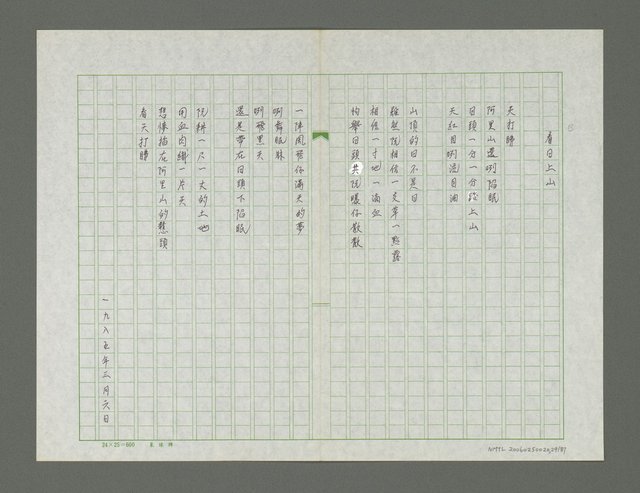 看日上山
天打暗
阿里山還咧陷眠
日頭一分一分𬦰上山
天紅目咧混目油
山頂的日不是日
雖然阮相信一支草一點露
相信一寸地一滴血
怕攀日頭共阮曝仔散散
一陣風吹你滿天的夢
咧舞眠牀
咧飛黑天
還是帶在日頭下陷眠
阮耕一尺一丈的土地
用血肉繡一片天
想像插在阿里山的
看天打暗
一九八五年三月六日
24×25=600
NMTL 20060250020